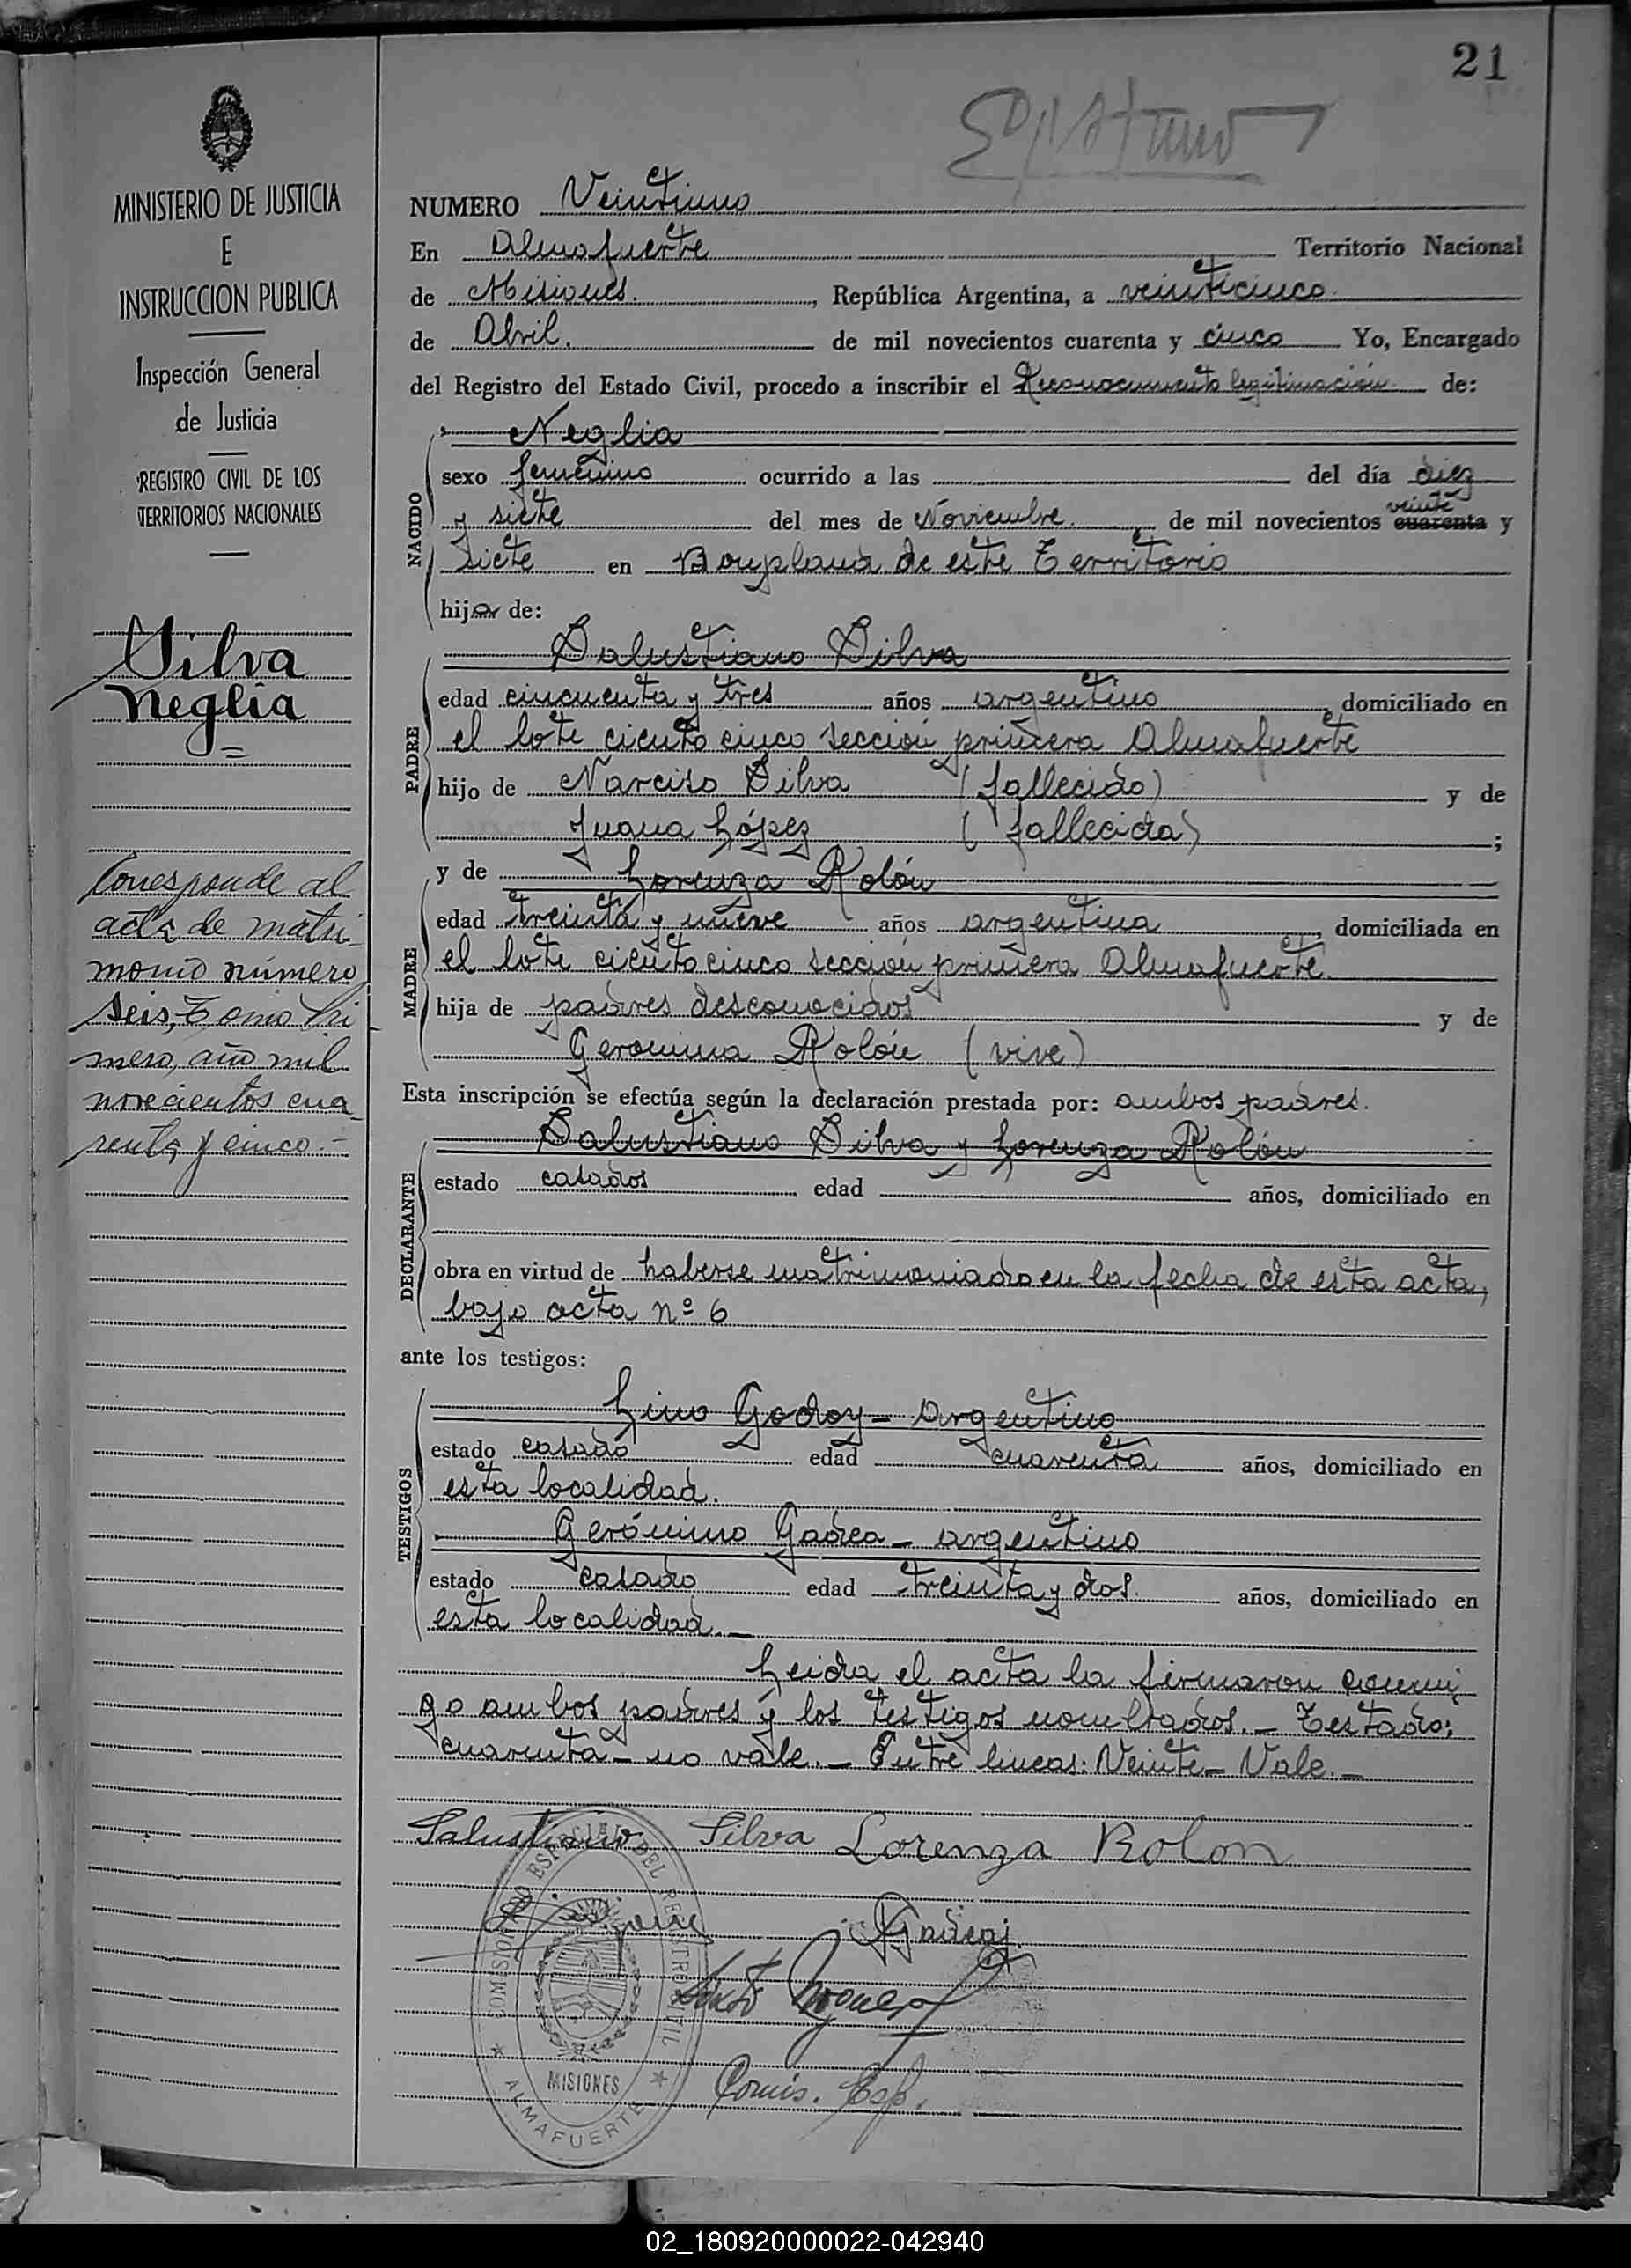 21
MINISTERIO DE JUSTICIA
E
INSTRUCCION PUBLICA
Inspección General
de Justicia
REGISTRO CIVIL DE LOS
TERRITORIOS NACIONALES
Silva
Neglia
Corresponde al
acta de matri-
monio número
seis, Tomo Pri
mero, año mil
novecientos cua
renta y cinco.-
NUMERO Veintiuno
En Almafuerte Territorio Nacional
de Misiones. , República Argentina, a veinticinco
de Abril. de mil novecientos cuarenta y cinco Yo, Encargado
del Registro del Estado Civil, procedo a inscribir el Reconocimiento legitimación de:
Neglia
NACIDO
sexo femenino ocurrido a las del día diez
y siete del mes de Noviembre. , de mil novecientos cuarenta veinte y
siete en Bouplaud de este Territorio
hija de:
Salustiano Silva
PADRE
edad cincuenta y tres años argentino , domiciliado en
el lote ciento cinco sección primera Almafuerte
hijo de Narciso Silva (fallecido) y de
Juana López (fallecida) ;
y de Lorenza Rolón
MADRE
edad treinta y nueve años argentina , domiciliada en
el lote ciento cinco sección primera Almafuerte.
hija de padres desconocidos y de
Geronima Rolón (vive)
Esta inscripción se efectúa según la declaración prestada por: ambos padres.
Salustiano Silva y Lorenza Rolón
DECLARANTE
estado casados edad años, domiciliado en
obra en virtud de haberse matrimoniado en la fecha de esta acta,
bajo acta nº 6
ante los testigos:
Lino Godoy - argentino
TESTIGOS
estado casado edad cuarenta años, domiciliado en
esta localidad.
Gerónimo Gadea - argentino
estado casado edad treinta y dos. años, domiciliado en
esta localidad.-
Leida el acta la firmaron conmi
go ambos padres y los testigos nombrados.- Testado:
cuarenta - no vale.- Entre lineas: Veinte - Vale.-
Salustiano Silva Lorenza Rolon
Gadea
Comis. Esp.
COMISIONADO ESPECIAL DEL REGISTRO CIVIL
MISIONES
ALMAFUERTE
02_180920000022-042940